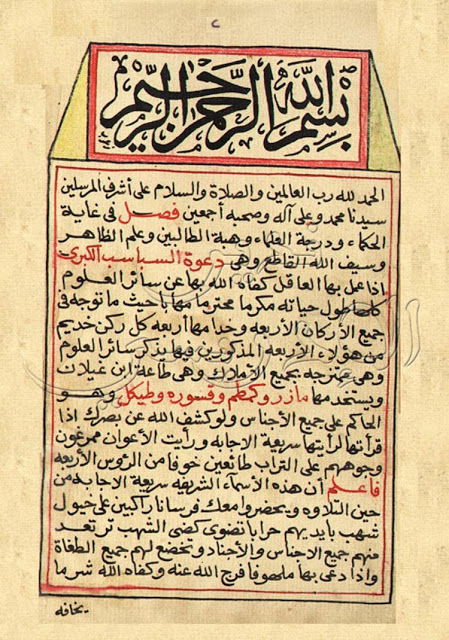 ٢
بسم الله الرحمن الرحيم
الحمد لله رب العالمين والصلاة والسلام على أشرف المرسلين
سيدنا محمد وعلى آله وصحبه أجمعين فصل في غاية
الحكماء ودرجة العلماء وهبة الطالبين وعلم الظاهر
وسيف الله القاطع وهى دعوة السباسب الكبرى
اذا عمل بها العاقل كفاه الله بها عن سائر العلوم
كلها طول حياته مكرما محترما مهابا حيث ما توجه فى
جميع الأركان الأربعه وخدامها أربعه كل ركن خديم
من هؤلاء الأربعه المذكورين فيها يذكر سائر العلوم
وهى ممتزجه بجميع الأملاك وهى طاعة ابن غيلان
ويستخدمها مازر وكمطم وقسوره وطيكل وهو
الحاكم على جميع الأجناس ولو كشف الله عن بصرك اذا
قرأتها لرأيتها سريعة الاجابه ورأيت الأعوان ممرغون
وجوههم على التراب طائعين خوفا من الرؤس الأربعه
فاعلم أن هذه الأسماء الشريفه سريعة الاجابه من
حين التلاوه ويحضروا معك فرسانا راكبين على خيول
شهب بايديهم حرابا تضوى كضى الشهب ترتعد
منهم جميع الاجناس والأجناد وتخضع لهم جميع الطغاة
واذا دعى بها ملهوفا فرج الله عنه وكفاه الله شر ما
يخافه